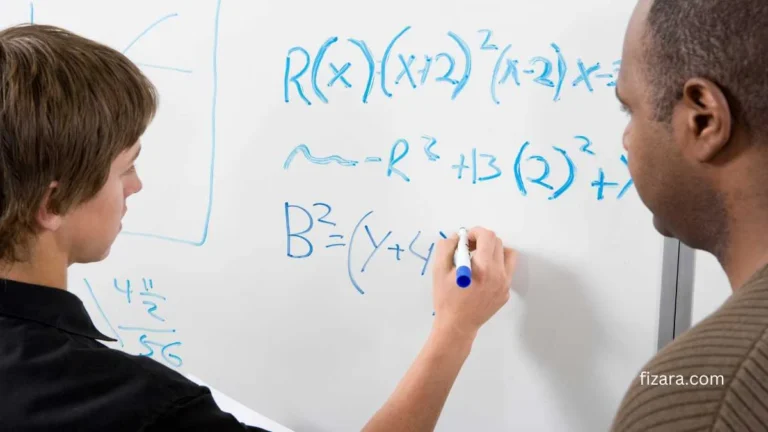 R(x)·(x+2)²(x-2)x-
-R²+13(2)²+
B²=(y+4)
4 π/2
56
fizara.com